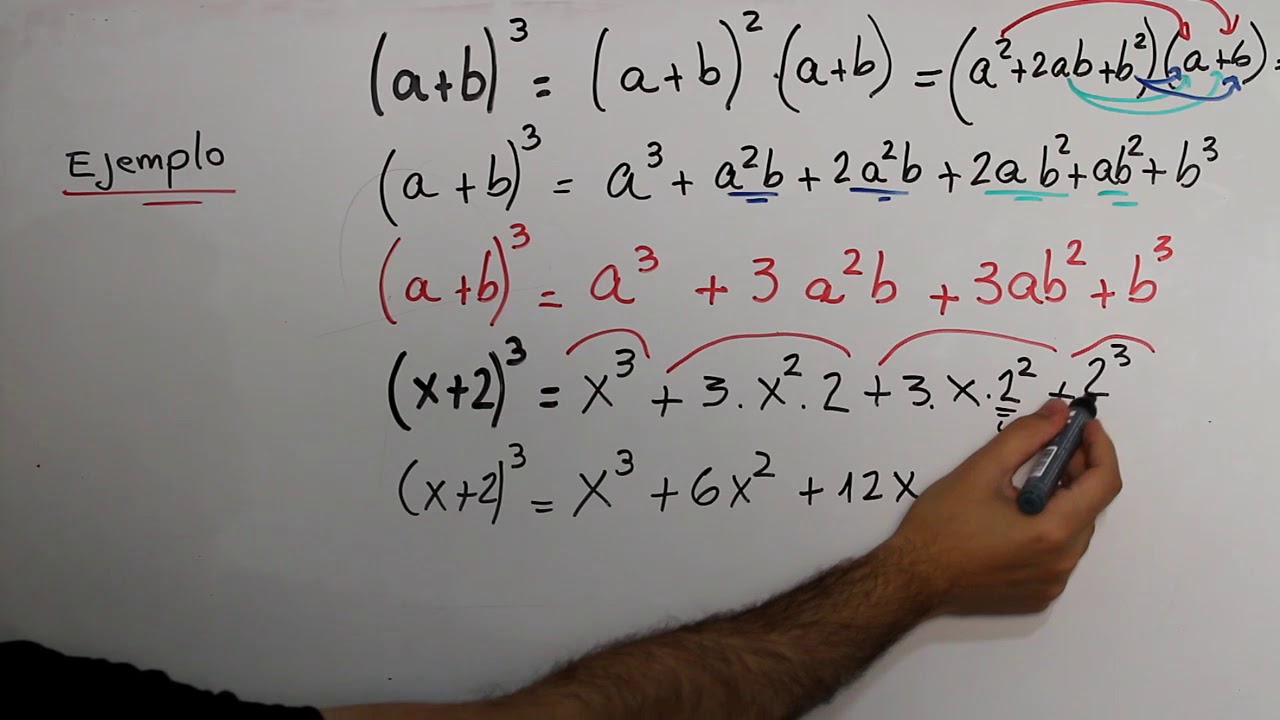 (a+b)³ = (a+b)²·(a+b) = (a²+2ab+b²)(a+b) =
Ejemplo
(a+b)³ = a³ + a²b + 2a²b + 2ab² + ab² + b³
(a+b)³ = a³ + 3a²b + 3ab² + b³
(x+2)³ = x³ + 3.x².2 + 3.x.2² + 2³
(x+2)³ = x³ + 6x² + 12x